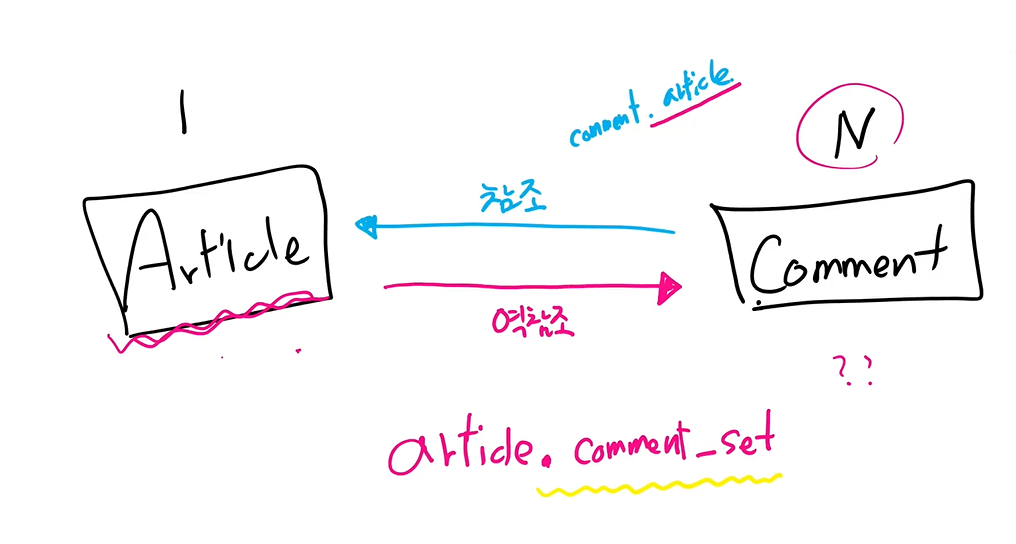 1
comment.article
N
참조
Article
Comment
역참조
??
article.comment_set